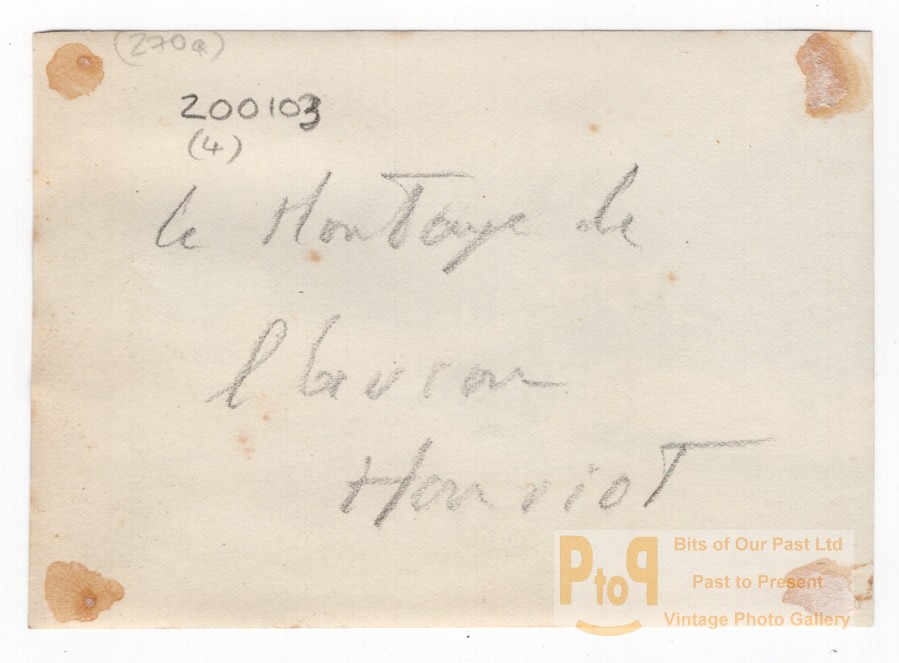 (270a)
200103
(4)
le Montage de
l'avion
Hanriot
PtoP
Bits of Our Past Ltd
Past to Present
Vintage Photo Gallery